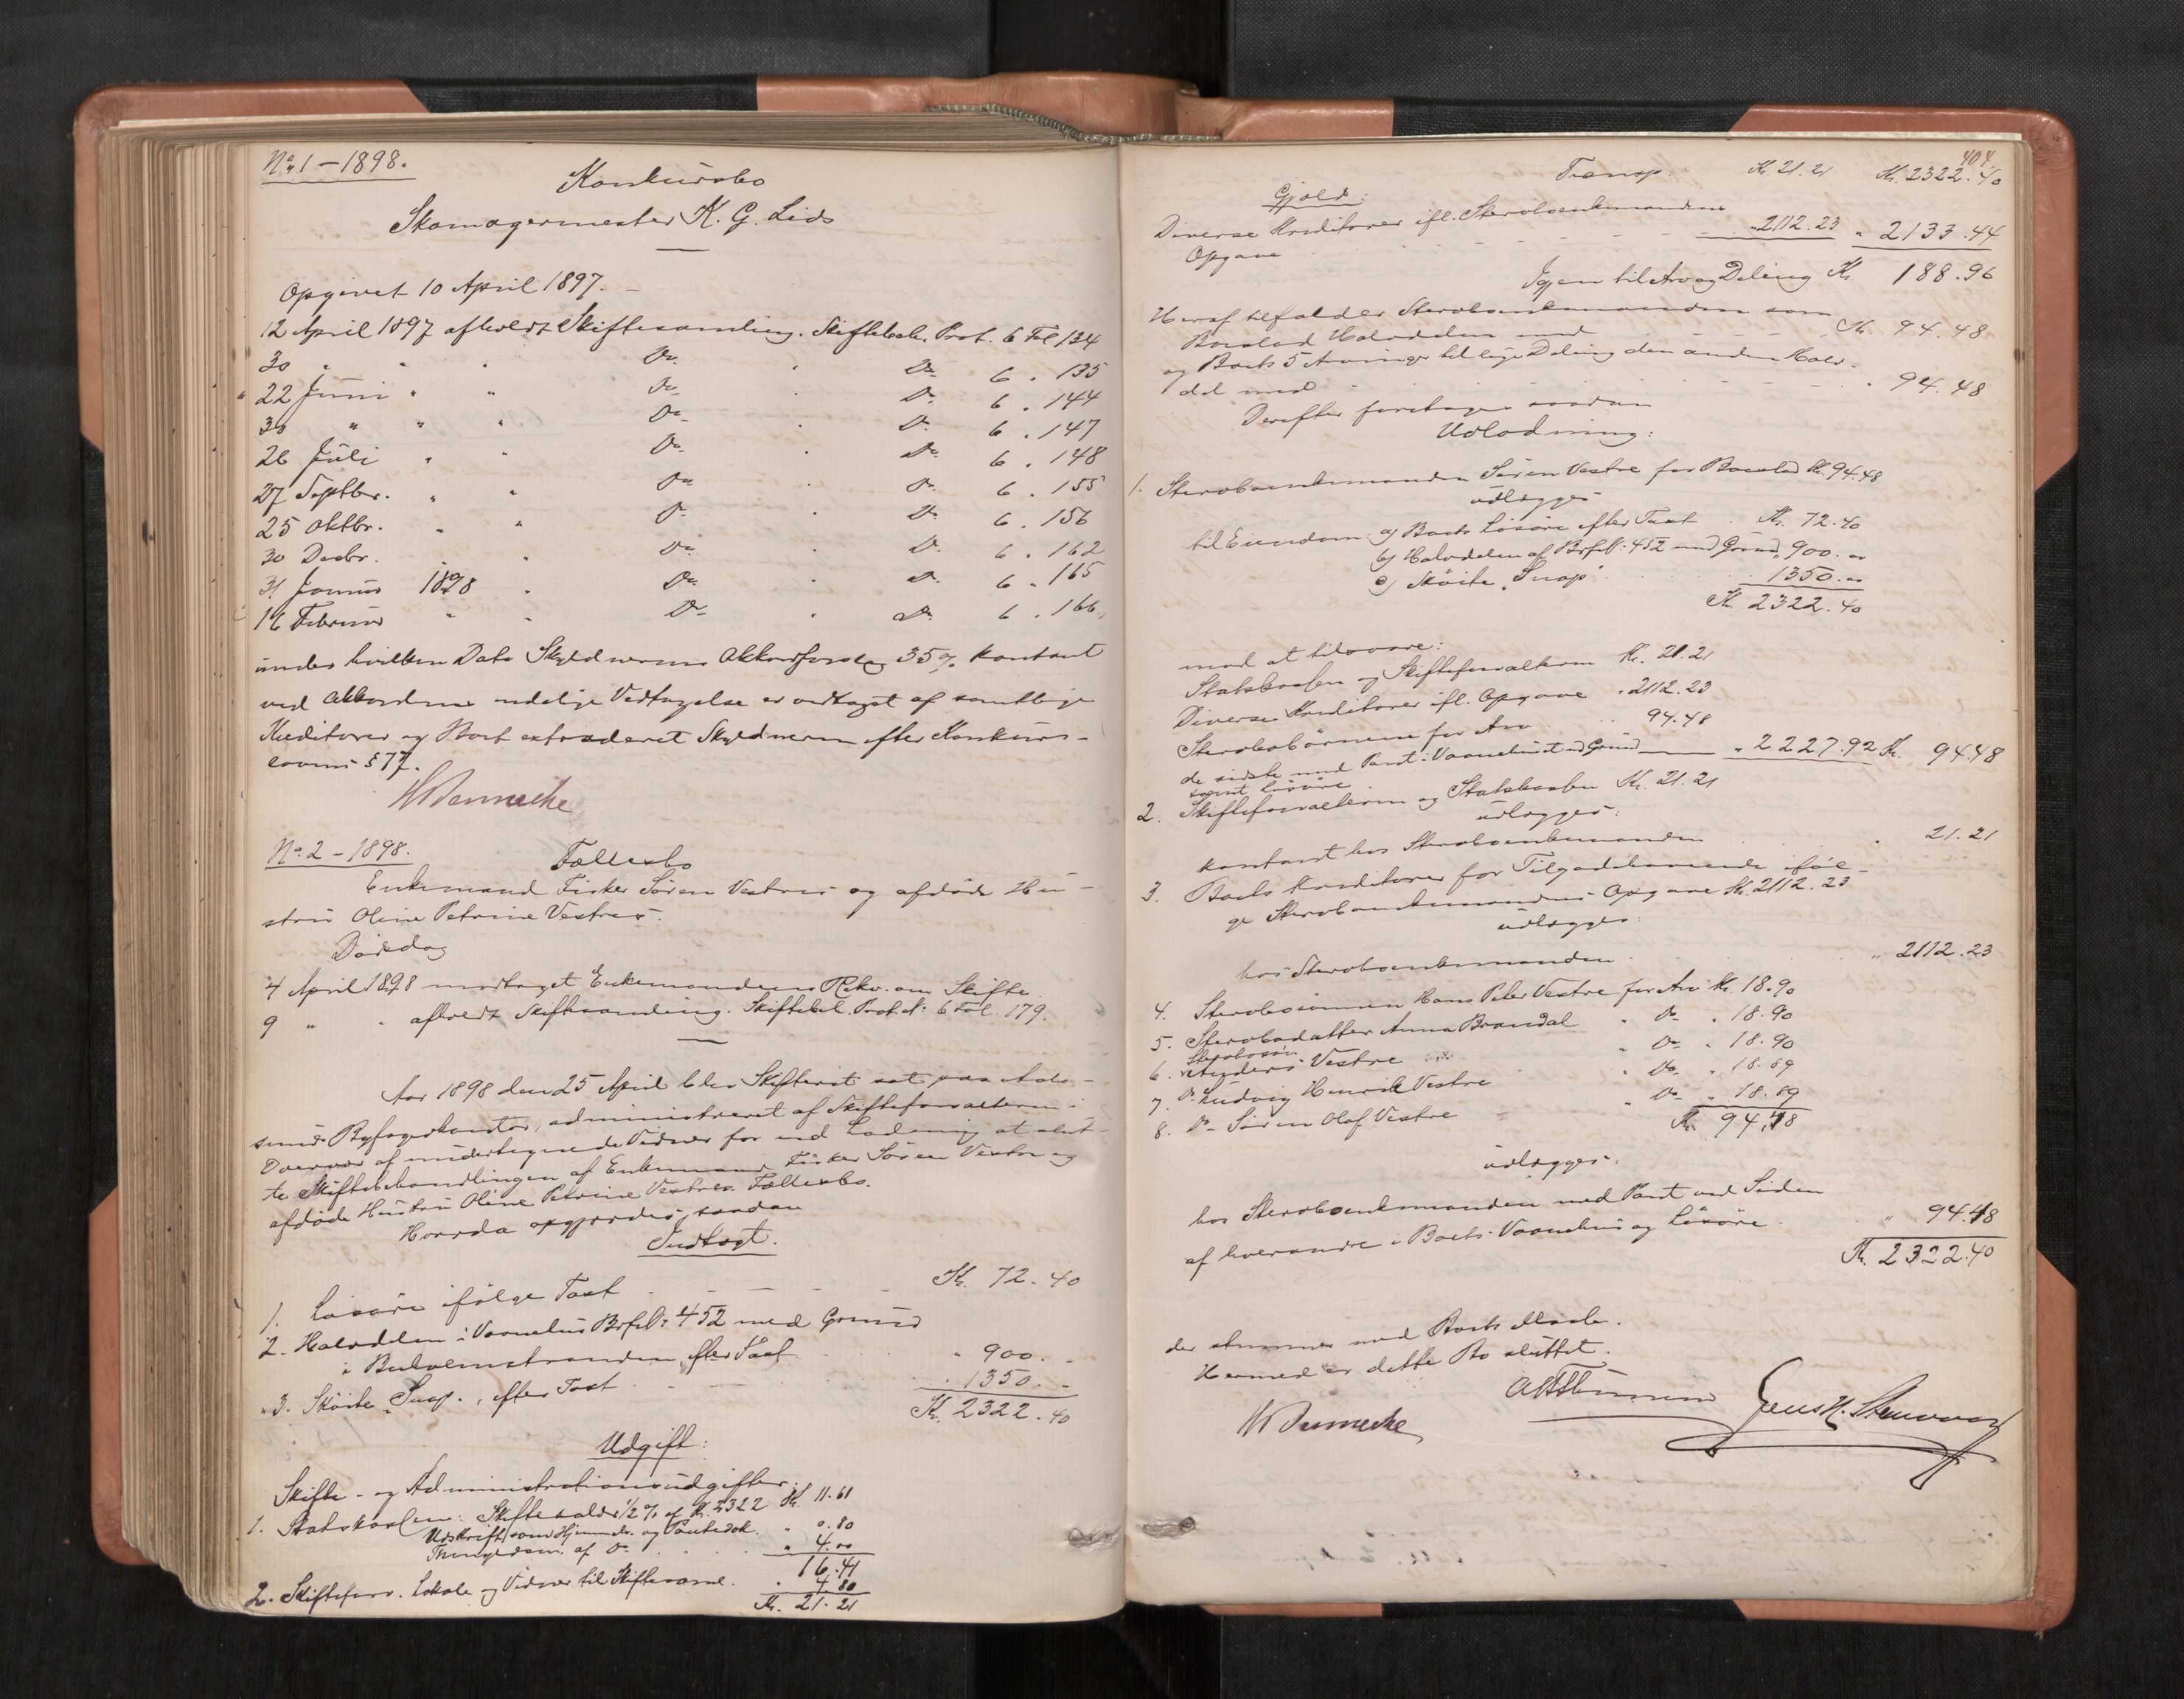 No. 1 - 1898.
Konkursbo
Skomagermester K. G. Lids
Opgivet 10 April 1897.
12 April 1897 afholdt Skiftesamling. Skiftebeh. Prot. 6 Fol 134
30 " " " Do. " Do. 6 . 135
22 Juni " " Do. " Do. 6 . 144
30 " " " Do. " Do. 6 . 147
26 Juli " " Do. " Do. 6 . 148
27 Septbr. " " Do. " Do. 6 . 155
25 Oktbr. " " Do. " Do. 6 . 156
30 Decbr. " Do. " Do. 6 . 162
31 Januar 1898 " Do. " Do. 6 . 165
16 Februar " " Do. " Do. 6 . 166,
under hvilken Dato Skyldnerens Akkordforslag 35 % kontant
ved Akkordens endelige Vedtagelse er vedtaget af samtlige
Kreditorer og Boet extraderet Skyldneren efter Konkurs-
lovens § 77.
No. 2 - 1898.
Fællesbo
Enkemand Fisker Søren Vestres og afdøde Hu-
stru Oline Petrine Vestres.
Dødsdag
4 April 1898 modtaget Enkemandens Rekv. om Skifte.
9 " " afholdt Skiftesamling. Skiftebeh. Prot. N: 6 Fol. 179.
Aar 1898 den 25 April blev Skifteret sat paa Aale-
sunds Byfogedkontor, administreret af Skifteforvalteren i
Overvær af undertegnede Vidner for ved Lodning at slut-
te Skiftebehandlingen af Enkemand Fisker Søren Vestre og
afdøde Hustru Oline Petrine Vestres Fællesbo.
Hvorda opgjordes saadan
Indtægt.
1. Løsøre ifølge Taxt Kr. 72.40
2. Halvdelen i Vaanehus Brfl. N: 452 med Grund
i Bulvemstranden efter Taxt " 900. -
3. Skøite "Snap", efter Taxt " 1350. -
Kr. 2322.40
Udgift:
Skifte- og Administrationsudgifter:
1. Statskassen: Skifteafald 1/2 % af Kr. 2322 Kr. 11.61
Udskrift som Hjemmels- og Pantedok. " 0.80
Thinglæsn. af Do. " 4.00
16.41
2. Skifteforv. Lokale og Vidner til Skiftesaml. " 4.80
Kr. 21.21
404.
Transp. Kr. 21.21 Kr. 2322.40
Gjæld:
Diverse Kreditorer ifl. Stervboenkemandens
Opgave " 2112.23 " 2133.44
Igjen til Arv og Deling Kr. 188.96
Heraf tilfalder Stervboenkemanden som
Boeslod Halvdelen med Kr. 94.48
og Boets 5 Arvinger til lige Deling den anden Halv-
del med " 94.48
Derefter foretages saadan
Udlodning:
1. Stervboenkemanden Søren Vestre for Boeslod Kr. 94.48
udlægges
til Eiendom: a) Boets Løsøre efter Taxt Kr. 72.40
b) Halvdelen af Brfl. N: 452 med Grund " 900.00
c) Skøite "Snap" 1350.00
Kr. 2322.40
mod at tilsvare:
Statskassen og Skifteforvalteren Kr. 21.21
Diverse Kreditorer ifl. Opgave " 2112.23
Stervbobørnene for Arv 94.48
de sidste med Pant i Vaanehuset med Grund " 2227.92 Kr. 94.48
samt Løsøre
2. Skifteforvalteren og Statskassen Kr. 21.21
udlægges:
kontant hos Stervboenkemanden " 21.21
3. Boets Kreditorer for Tilgodehavende iføl-
ge Stervboenkemandens Opgave Kr. 2112.23
udlægges:
hos Stervboenkemanden " 2112.23
4. Stervbosønnen Hans Peter Vestre for Arv Kr. 18.90
5. Stervbodatter Anna Brandal " Do. " 18.90
Stervbosøn
6. Anders Vestre " Do. " 18.90
7. Do. Ludvig Henrik Vestre " Do. " 18.89
8. Do. Søren Olaf Vestre " Do. " 18.89
Kr. 94.48
udlægges:
hos Stervboenkemanden med Pant ved Siden
af hverandre i Boets Vaanehus og Løsøre " 94.48
Kr. 2322.40
der stemmer med Boets Masse.
Hermed er dette Bo sluttet.